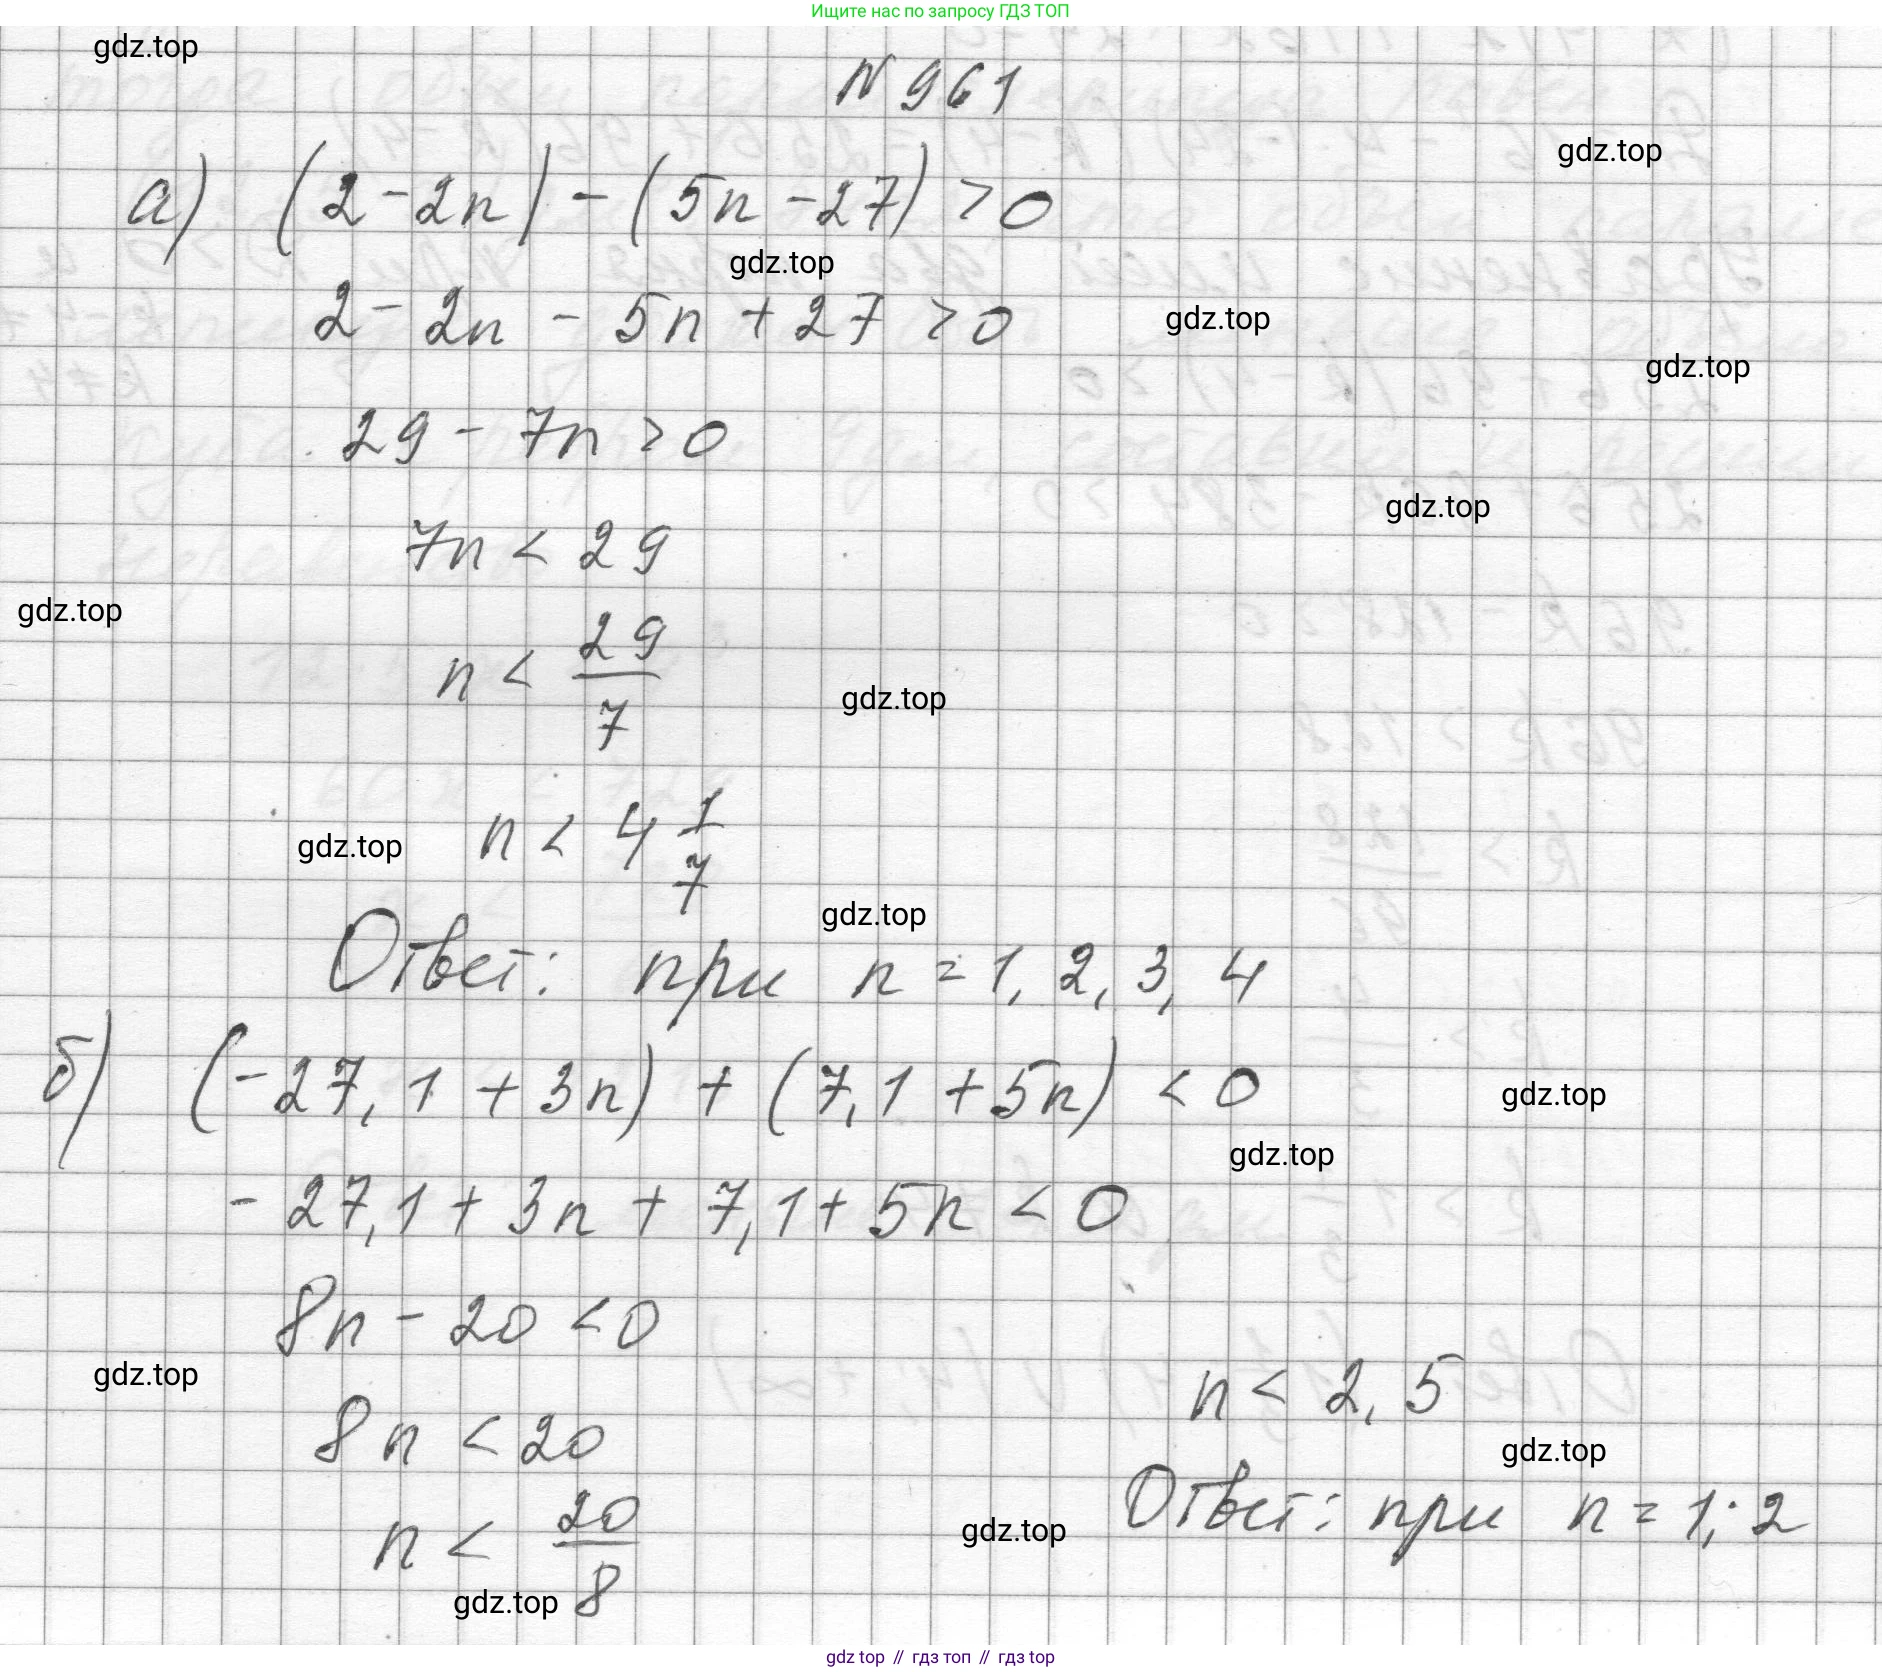 Ищите нас по запросу ГДЗ ТОП
gdz.top
N 961
gdz.top
а) (2 - 2n) - (5n - 27) > 0
gdz.top
2 - 2n - 5n + 27 > 0
gdz.top
gdz.top
29 - 7n > 0
gdz.top
7n < 29
gdz.top
n < 29/7
gdz.top
n < 4 1/7
gdz.top
gdz.top
Ответ: при n = 1, 2, 3, 4
б) (-27,1 + 3n) + (7,1 + 5n) < 0
gdz.top
gdz.top
-27,1 + 3n + 7,1 + 5n < 0
8n - 20 < 0
gdz.top
8n < 20
n < 20/8
gdz.top
n < 2,5
gdz.top
Ответ: при n = 1; 2
gdz.top
gdz top // гдз топ // гдз top